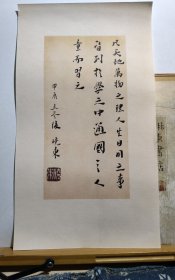 凡天地萬物之理人生日用之事
皆列於學之中通國之人
童而習之
甲辰立冬後 曉東